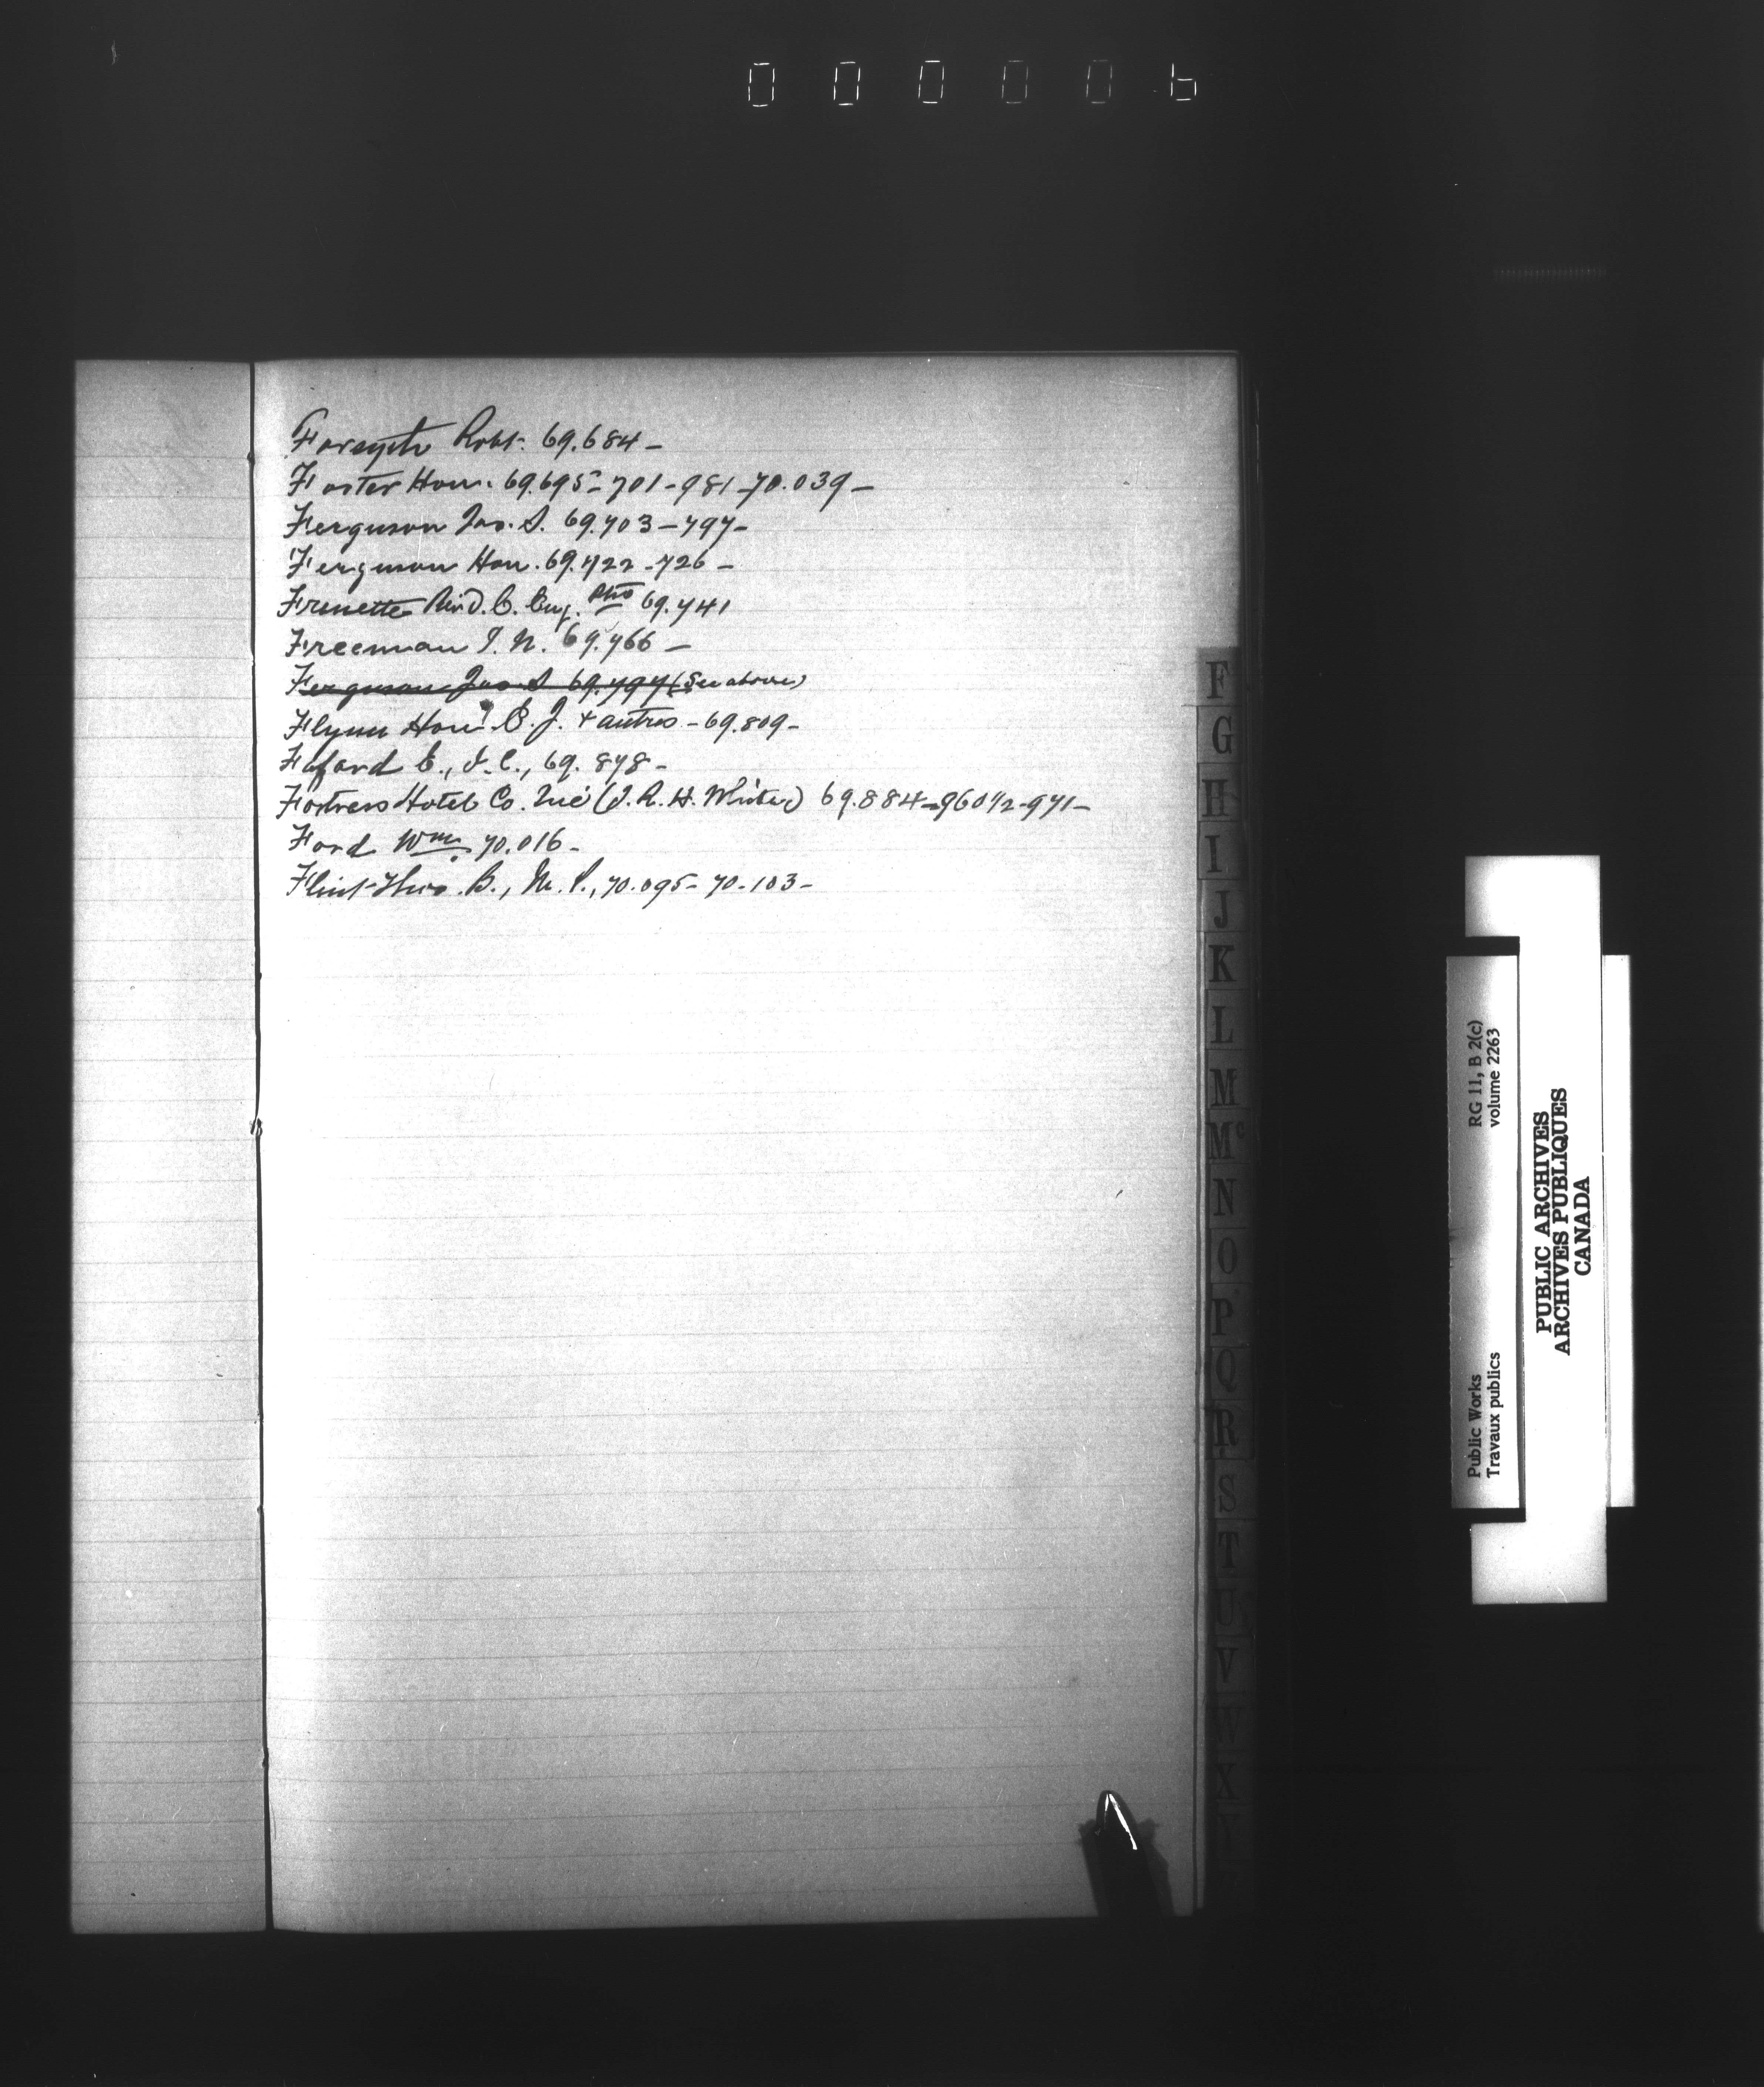 000006
Forsyth Robt. 69.684-
Foster Hon. 69.695-701-981-70.039-
Ferguson Jas. S. 69.703-797-
Ferguson Hon. 69.722-726-
Frenette Rév'd. C. Eug. Ptre 69.741
Freeman J. N. 69.766-
Ferguson Jas. S 69.797 (See above)
Flynn Hon. E. J. + autres - 69.809-
Fafard E., I.C., 69.878-
Fortress Hotel Co. Inc (J. R. H. White) 69.884-960½-971-
Ford Wm. 70.016-
Flint Thos. B., M. P., 70.095-70-103-
F
G
H
I
J
K
L
M
Mc
N
O
P
Q
R
S
T
U
V
W
X
Y
Z
Public Works RG 11, B 2(c)
Travaux publics volume 2263
PUBLIC ARCHIVES
ARCHIVES PUBLIQUES
CANADA